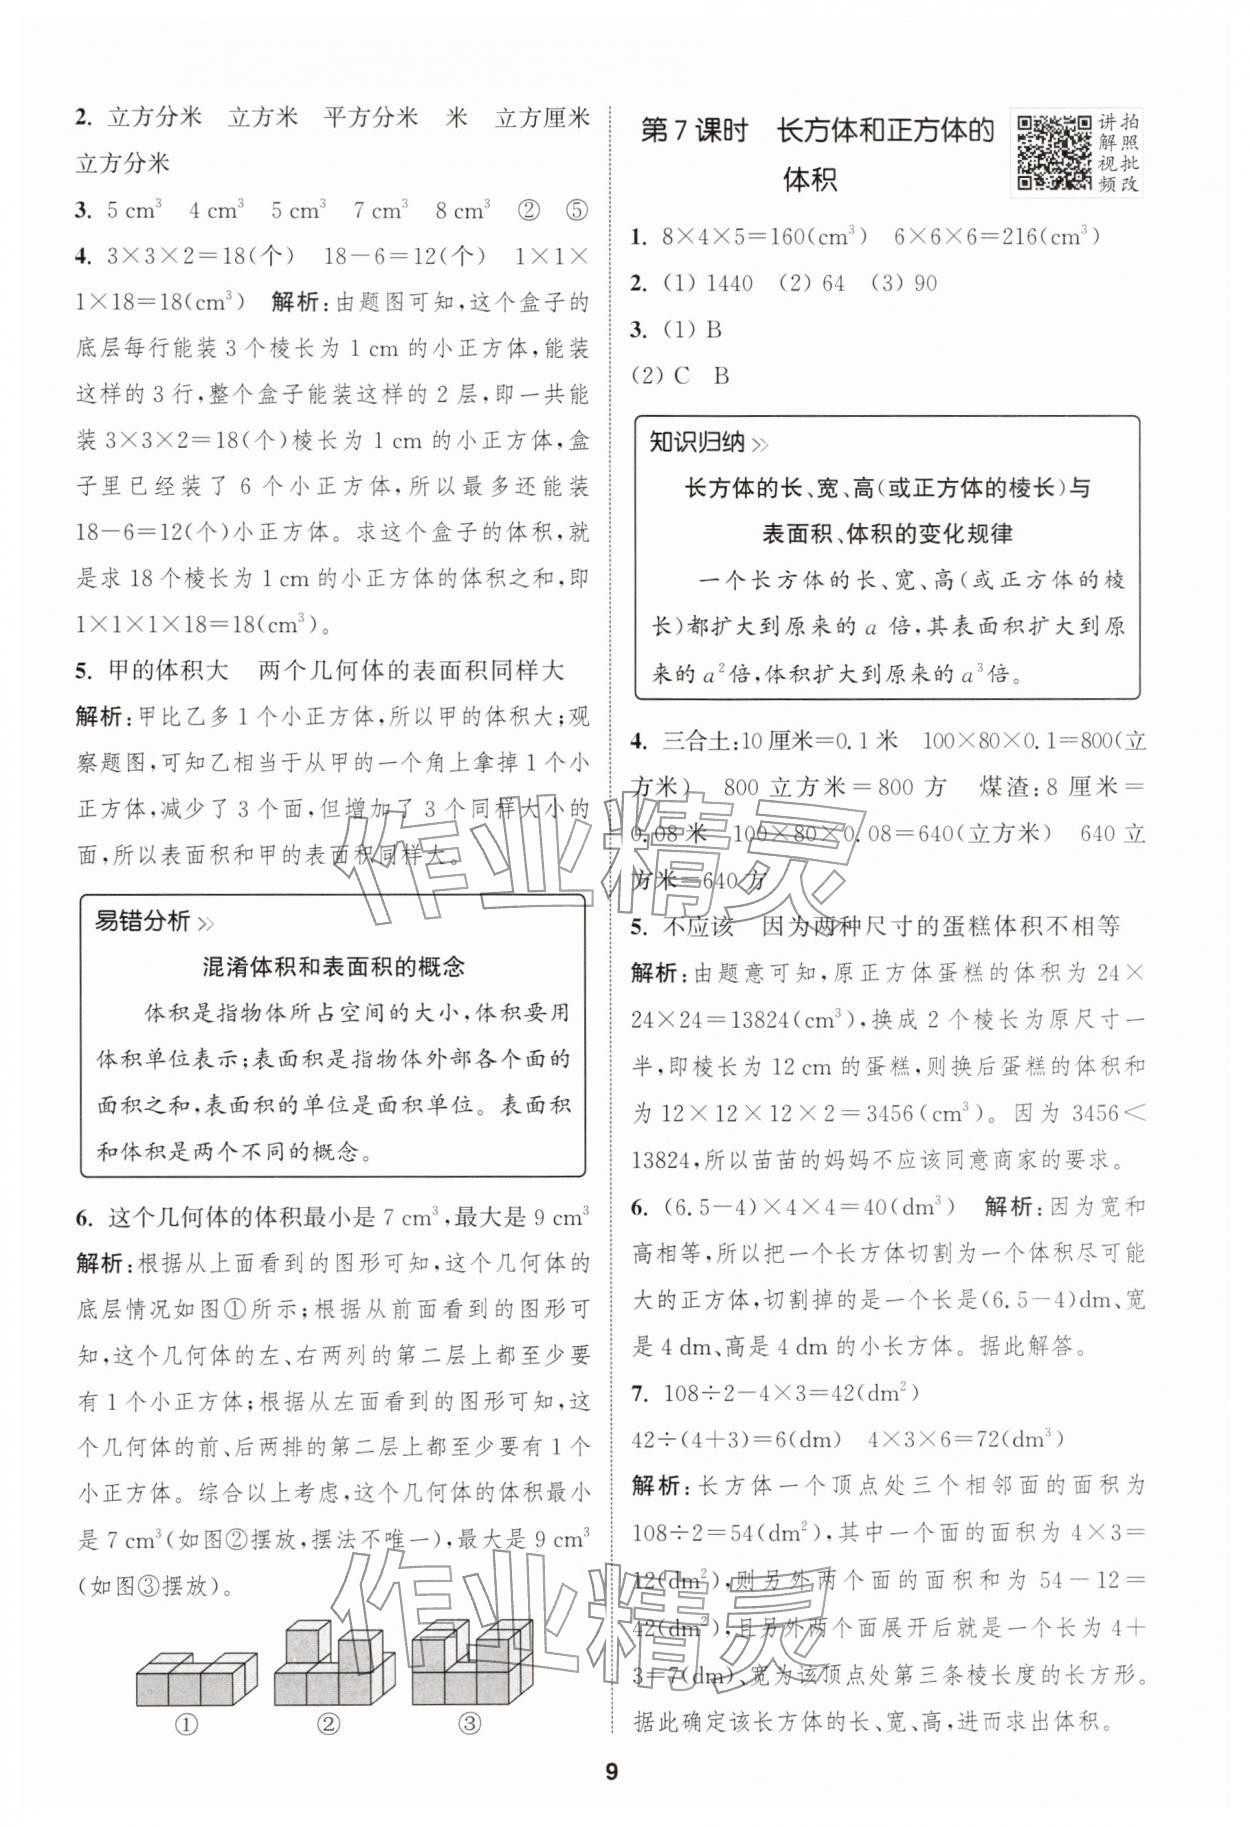 2. 立方分米　立方米　平方分米　米　立方厘米
立方分米
3. 5 cm³　4 cm³　5 cm³　7 cm³　8 cm³　②　⑤
4. 3×3×2=18(个)　18-6=12(个)　1×1×
1×18=18(cm³)　解析:由题图可知,这个盒子的
底层每行能装 3 个棱长为 1 cm 的小正方体,能装
这样的 3 行,整个盒子能装这样的 2 层,即一共能
装 3×3×2=18(个)棱长为 1 cm 的小正方体,盒
子里已经装了 6 个小正方体,所以最多还能装
18-6=12(个)小正方体。求这个盒子的体积,就
是求 18 个棱长为 1 cm 的小正方体的体积之和,即
1×1×1×18=18(cm³)。
5. 甲的体积大　两个几何体的表面积同样大
解析:甲比乙多 1 个小正方体,所以甲的体积大;观
察题图,可知乙相当于从甲的一个角上拿掉 1 个小
正方体,减少了 3 个面,但增加了 3 个同样大小的
面,所以表面积和甲的表面积同样大。
易错分析
混淆体积和表面积的概念
体积是指物体所占空间的大小,体积要用
体积单位表示;表面积是指物体外部各个面的
面积之和,表面积的单位是面积单位。表面积
和体积是两个不同的概念。
6. 这个几何体的体积最小是 7 cm³,最大是 9 cm³
解析:根据从上面看到的图形可知,这个几何体的
底层情况如图①所示;根据从前面看到的图形可
知,这个几何体的左、右两列的第二层上都至少要
有 1 个小正方体;根据从左面看到的图形可知,这
个几何体的前、后两排的第二层上都至少要有 1 个
小正方体。综合以上考虑,这个几何体的体积最小
是 7 cm³(如图②摆放,摆法不唯一),最大是 9 cm³
(如图③摆放)。
①　②　③
第 7 课时　长方体和正方体的
体积
讲解视频
拍照批改
1. 8×4×5=160(cm³)　6×6×6=216(cm³)
2. (1) 1440　(2) 64　(3) 90
3. (1) B
(2) C　B
知识归纳
长方体的长、宽、高(或正方体的棱长)与
表面积、体积的变化规律
一个长方体的长、宽、高(或正方体的棱
长)都扩大到原来的 a 倍,其表面积扩大到原
来的 a²倍,体积扩大到原来的 a³倍。
4. 三合土:10 厘米=0.1 米　100×80×0.1=800(立
方米)　800 立方米=800 方　煤渣:8 厘米=
0.08 米　100×80×0.08=640(立方米)　640 立
方米=640 方
5. 不应该　因为两种尺寸的蛋糕体积不相等
解析:由题意可知,原正方体蛋糕的体积为 24×
24×24=13824(cm³),换成 2 个棱长为原尺寸一
半,即棱长为 12 cm 的蛋糕,则换后蛋糕的体积和
为 12×12×12×2=3456(cm³)。因为 3456<
13824,所以苗苗的妈妈不应该同意商家的要求。
6. (6.5-4)×4×4=40(dm³)　解析:因为宽和
高相等,所以把一个长方体切割为一个体积尽可能
大的正方体,切割掉的是一个长是(6.5-4)dm、宽
是 4 dm、高是 4 dm 的小长方体。据此解答。
7. 108÷2-4×3=42(dm²)
42÷(4+3)=6(dm)　4×3×6=72(dm³)
解析:长方体一个顶点处三个相邻面的面积为
108÷2=54(dm²),其中一个面的面积为 4×3=
12(dm²),则另外两个面的面积和为 54-12=
42(dm²),且另外两个面展开后就是一个长为 4+
3=7(dm)、宽为该顶点处第三条棱长度的长方形。
据此确定该长方体的长、宽、高,进而求出体积。
作业精灵
作业精灵
9